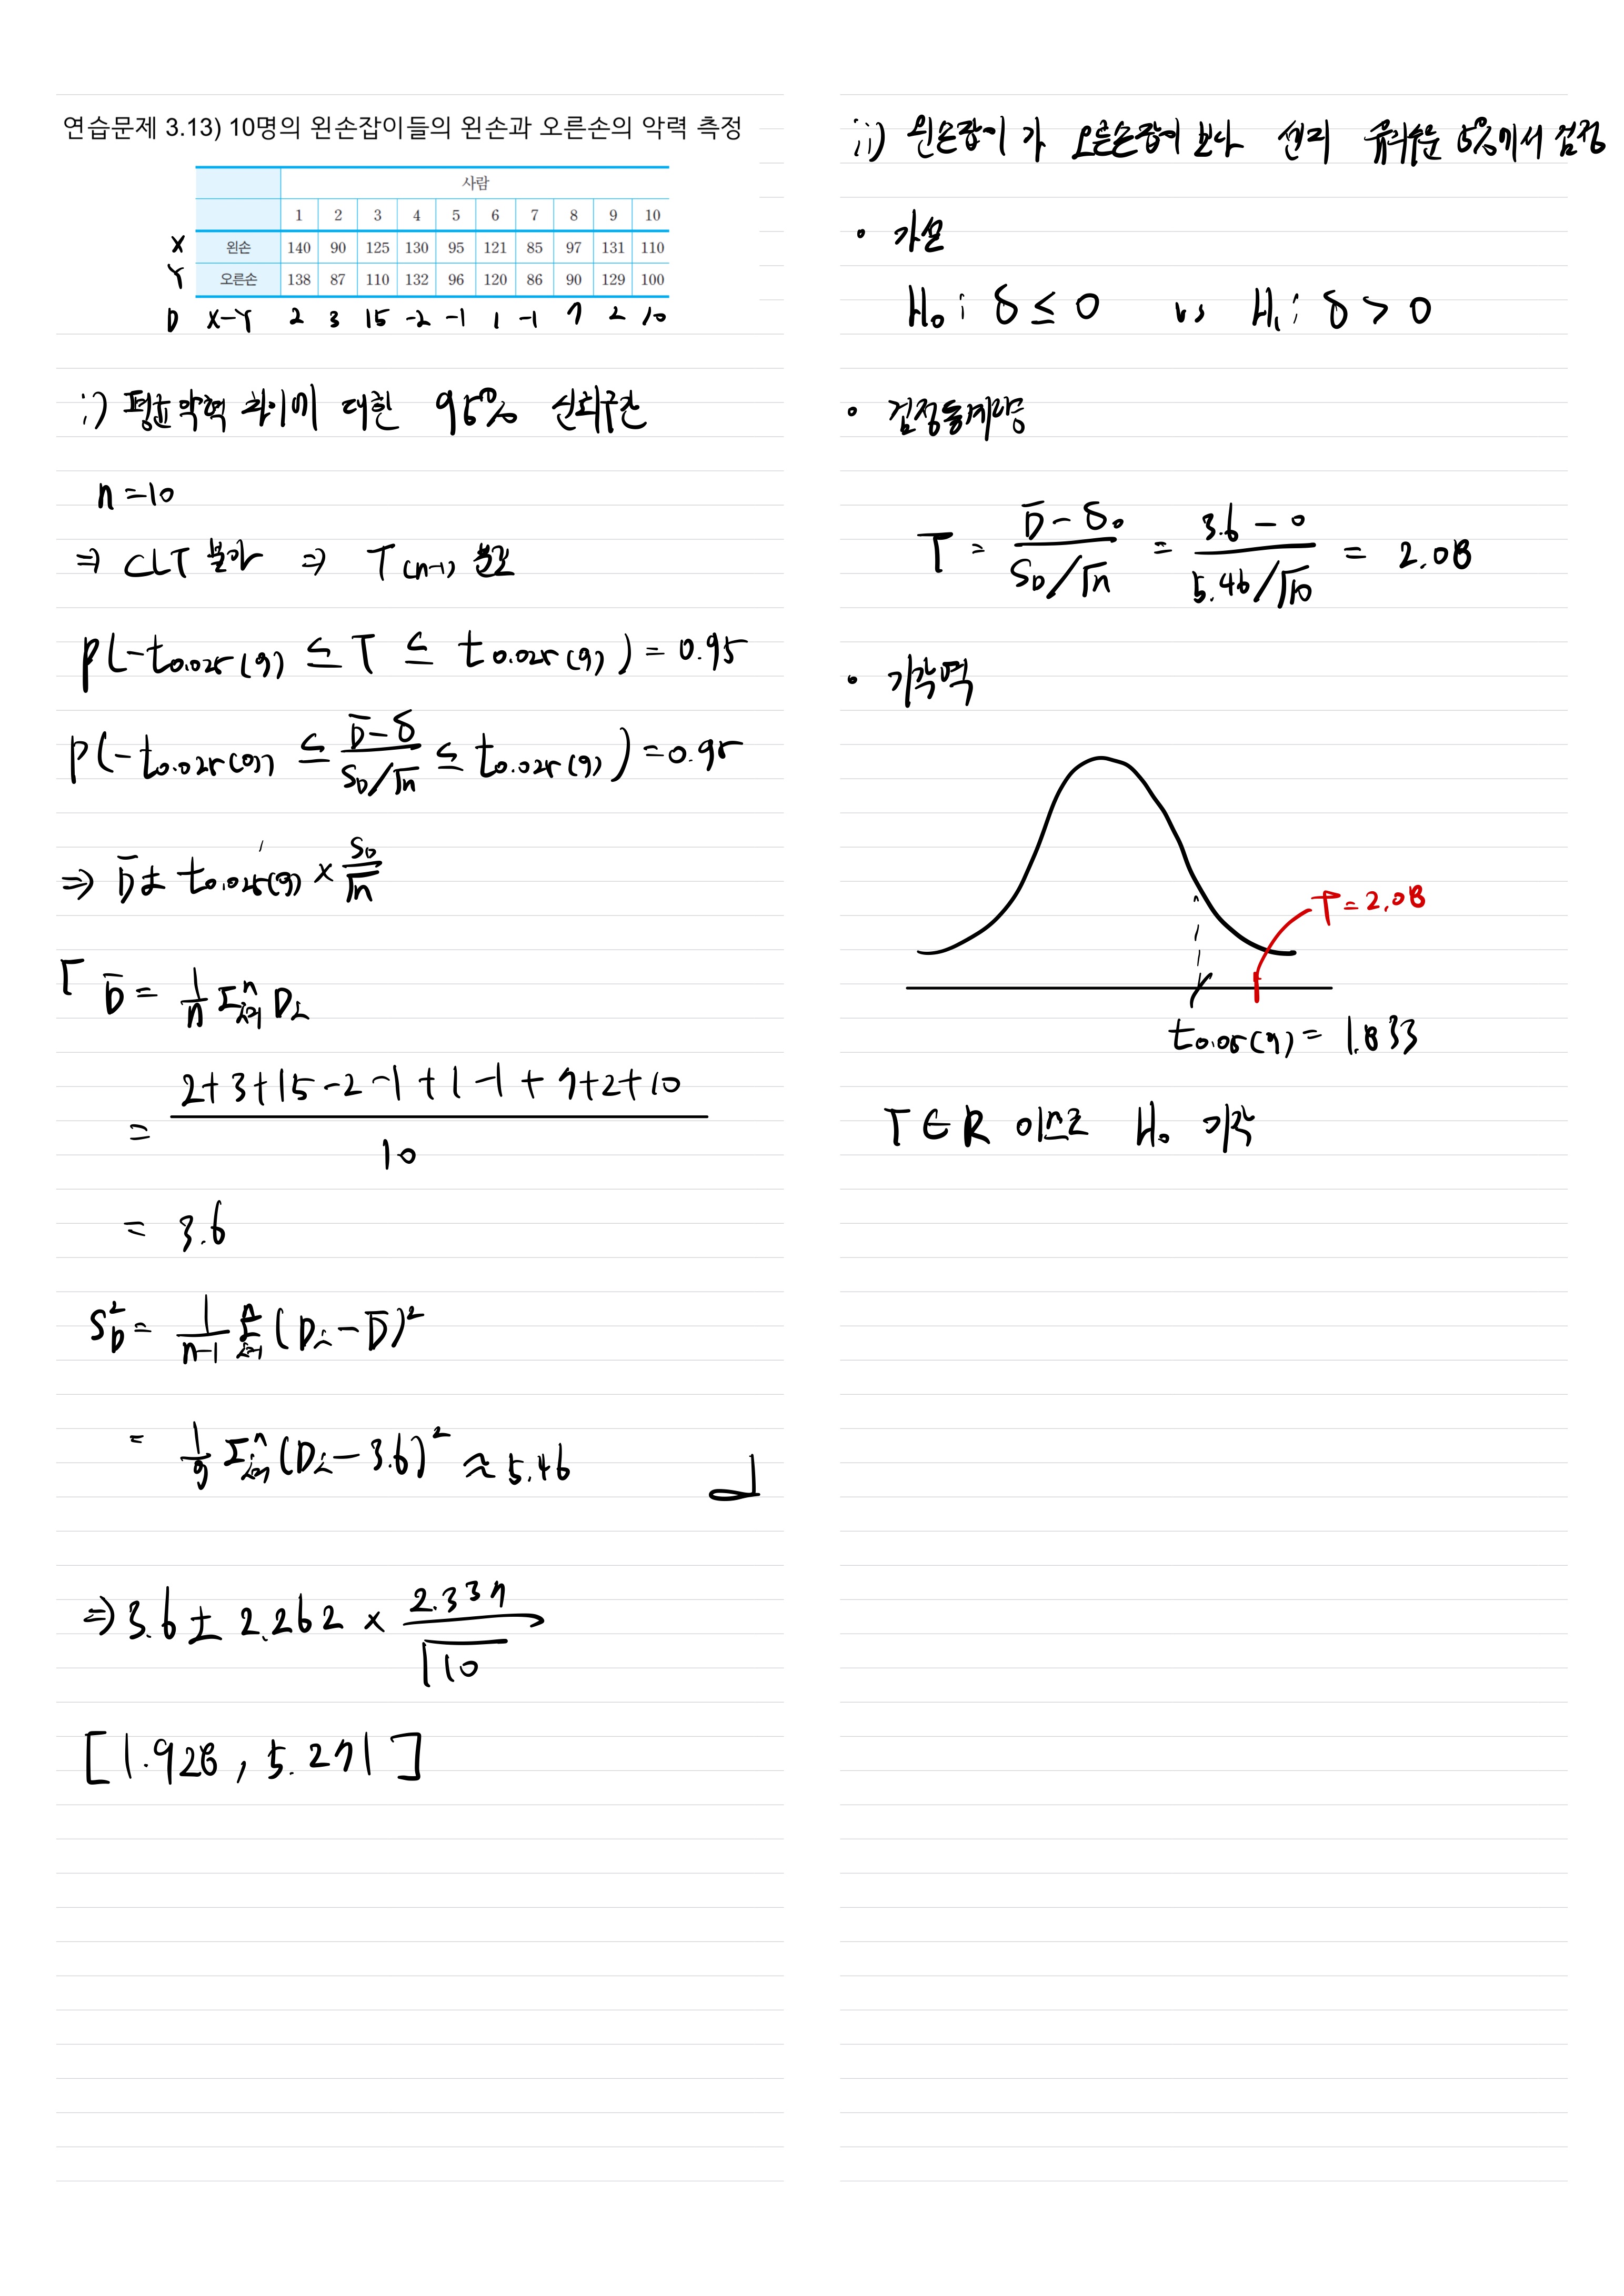 연습문제 3.13) 10명의 왼손잡이들의 왼손과 오른손의 악력 측정
사람
1 2 3 4 5 6 7 8 9 10
X 왼손 140 90 125 130 95 121 85 97 131 110
Y 오른손 138 87 110 132 96 120 86 90 129 100
D X-Y 2 3 15 -2 -1 1 -1 7 2 10
i) 평균악력 차이에 대한 95% 신뢰구간
n=10
⇒ CLT 불가 ⇒ T(n-1) 분포
P(-t0.025(9) ≤ T ≤ t0.025(9)) = 0.95
P(-t0.025(9) ≤ (D̄-δ)/(S_D/√n) ≤ t0.025(9)) = 0.95
⇒ D̄ ± t0.025(9) × S_D/√n
「 D̄ = 1/n Σ_{i=1}^n D_i
= (2+3+15-2-1+1-1+7+2+10)/10
= 3.6
S_D^2 = 1/(n-1) Σ_{i=1}^n (D_i-D̄)^2
= 1/9 Σ_{i=1}^n (D_i-3.6)^2 ≈ 5.46 」
⇒ 3.6 ± 2.262 × 2.337/√10
[1.928, 5.271]
ii) 왼손잡이가 오른손잡이보다 센지 유의수준 5%에서 검정
• 가설
H₀ : δ ≤ 0 vs H₁ : δ > 0
• 검정통계량
T = (D̄-δ₀)/(S_D/√n) = (3.6-0)/(5.46/√10) = 2.08
• 기각역
T=2.08
t0.05(9) = 1.833
T∈R 이므로 H₀ 기각